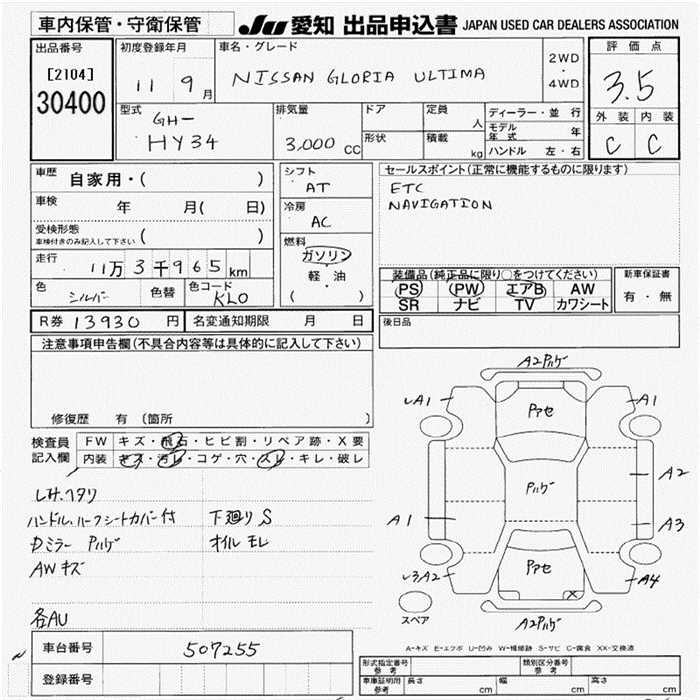 車内保管・守衛保管
JU 愛知 出品申込書 JAPAN USED CAR DEALERS ASSOCIATION
出品番号
[2104]
30400
初度登録年月
11 9月
車名・グレード
NISSAN GLORIA ULTIMA
2WD
・
4WD
評価点
3.5
外装 内装
C C
型式
GH-
HY34
排気量
3,000 CC
ドア
形状
定員
人
積載
kg
ディーラー・並行
モデル年式 年
ハンドル 左・右
車歴 自家用・( )
車検 年 月( 日)
受検形態
車検付きのみ記入して下さい ( )
走行 11万3千965km
色 シルバー 色替 色コード KL0
シフト
AT
冷房
AC
燃料
ガソリン
・
軽・油
( )
セールスポイント(正常に機能するものに限ります)
ETC
NAVIGATION
装備品(純正品に限り○をつけてください)
PS PW エアB AW
SR ナビ TV カワシート
新車保証書
有・無
R券 13930円 名変通知期限 月 日
後日品
注意事項申告欄(不具合内容等は具体的に記入して下さい)
修復歴 有 〔箇所 〕
検査員記入欄
FW キズ・飛石・ヒビ割・リペア跡・X要
内装 キズ・汚レ・コゲ・穴・スレ・キレ・破レ
シートヘタリ
ハンドル、ハーフシートカバー付 下廻りS
Dミラー Pハゲ オイルモレ
AWキズ
各AU
A2Pハゲ
レA1
A1
Pアセ
Pハゲ
A2
A1
A3
Pアセ
X
レ3A2
A4
スペア
A2Pハゲ
A-キズ E-エクボ U-凹み W-補修跡 S-サビ C-腐食 XX-交換済
車台番号 507255
登録番号
形式指定番号
参考
類別区分番号
参考
車庫証明用
参考
長さ cm 幅 cm 高さ cm